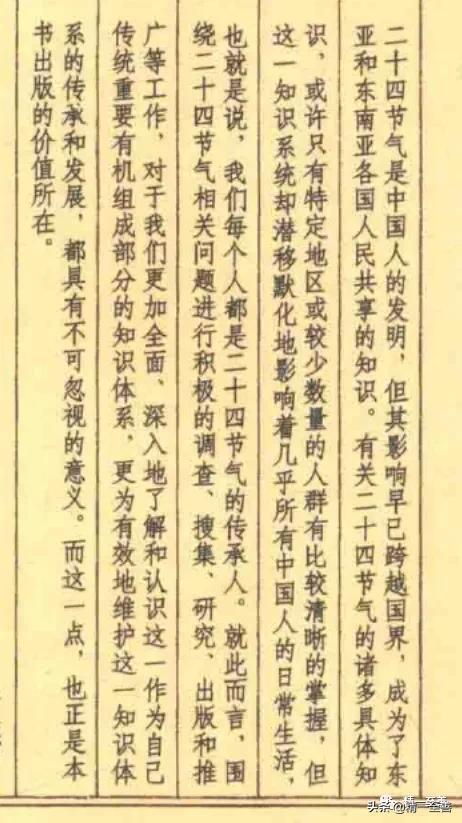 二十四节气是中国人的发明，但其影响早已跨越国界，成为了东
亚和东南亚各国人民共享的知识。有关二十四节气的诸多具体知
识，或许只有特定地区或较少数量的人群有比较清晰的掌握，但
这一知识系统却潜移默化地影响着几乎所有中国人的日常生活，
也就是说，我们每个人都是二十四节气的传承人。就此而言，围
绕二十四节气相关问题进行积极的调查、搜集、研究、出版和推
广等工作，对于我们更加全面、深入地了解和认识这一作为自己
传统重要有机组成部分的知识体系，更为有效地维护这一知识体
系的传承和发展，都具有不可忽视的意义。而这一点，也正是本
书出版的价值所在。
头条@精一至善